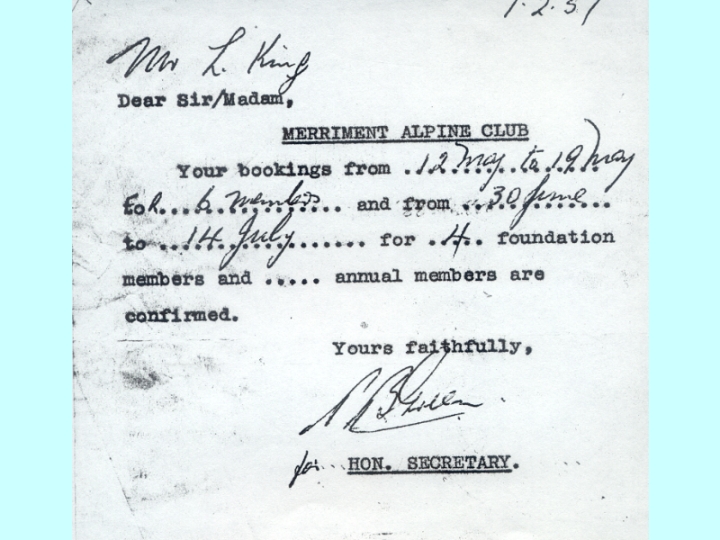 1.2.57
Mr L. King
Dear Sir/Madam,
MERRIMENT ALPINE CLUB
Your bookings from ..12 May..to 19 May
foR...6 members... and from ..30 June...
to ..14 July....... for .4.. foundation
members and ..... annual members are
confirmed.
Yours faithfully,
for HON. SECRETARY.